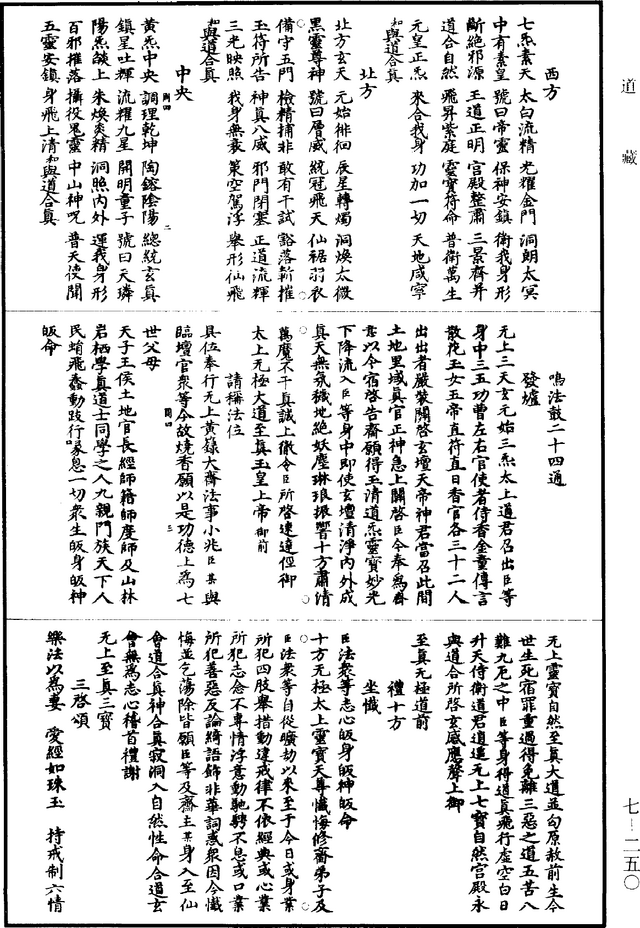 道藏
西方
七炁素天　太白流精　光耀金門　洞朗太冥
中有素皇　號曰帝靈　保神安鎮　衛我身形
斷絕邪源　王道正明　宮殿整肅　三景齊并
道合自然　飛昇紫庭　靈寶符命　普衛萬生
元皇正炁　來合我身　功加一切　天地咸寧
和與道合真
北方
北方玄天　元始徘徊　辰星轉燭　洞煥太微
黑靈尊神　號曰層威　統冠飛天　仙裾羽衣
備守五門　檢精捕非　敢有干試　豁落斬摧
玉符所告　神真八威　邪門閉塞　正道流輝
三光映照　我身無衰　策空駕浮　舉形仙飛
和與道合真
中央
黃炁中央　調理乾坤　陶鎔陰陽　總統玄真
鎮星吐輝　流耀九星　開明童子　號曰天璘
陽炁燄上　朱煥炎精　洞照內外　運我身形
百邪摧落　攝役鬼靈　中山神呪　普天使聞
五靈安鎮　身飛上清　和與道合真
鳴法鼓二十四通
發爐
无上三天玄元始三炁太上道君召出臣等
身中三五功曹左右官使者侍香金童傳言
散花玉女五帝直符直日香官各三十二人
出出者嚴裝關啓玄壇天帝神君當召此間
土地里域真官正神急上關啓臣今奉爲齋
意以今宿啓告齋願得玉清道炁靈寶妙光
下降流入臣等身中即使玄壇清淨內外成
真天無氛穢地絕妖塵琳琅振響十方肅清
萬魔不干真誠上徹令臣所啓速達徑御
太上无極大道至真玉皇上帝御前
請稱法位
具位奉行无上黃籙大齋法事小兆臣某與
臨壇官衆等今故燒香願以是功德上爲七
世父母
天子王侯土地官長經師籍師度師及山林
岩栖學真道士同學之人九親門族天下人
民蛸飛蠢動跂行喙息一切衆生皈身皈神
皈命
无上靈寶自然至真大道並匄原赦前生今
世生死宿罪重過得免離三惡之道五苦八
難九厄之中臣等身得道真飛行虛空白日
升天侍衛道君逍遥无上七寶自然宮殿永
與道合所啓玄感應聲上御
至真无極道前
禮十方
坐懺
臣法衆等志心皈身皈神皈命
十方无極太上靈寶天尊懺悔修齋弟子及
臣法衆等自從曠劫以來至于今日或身業
所犯四肢舉措動違戒律不依經典或心業
所犯志念不專情浮意動馳騁不息或口業
所犯善惡反論綺語飾非華詞惑衆因今懺
悔並乞蕩除皆願臣等及齋主某身入至仙
會道合真神合真寂洞入自然性命合道玄
會無爲志心稽首禮謝
无上至真三寶
三啓頌
樂法以爲妻　愛經如珠玉　持戒制六情
七—二五〇